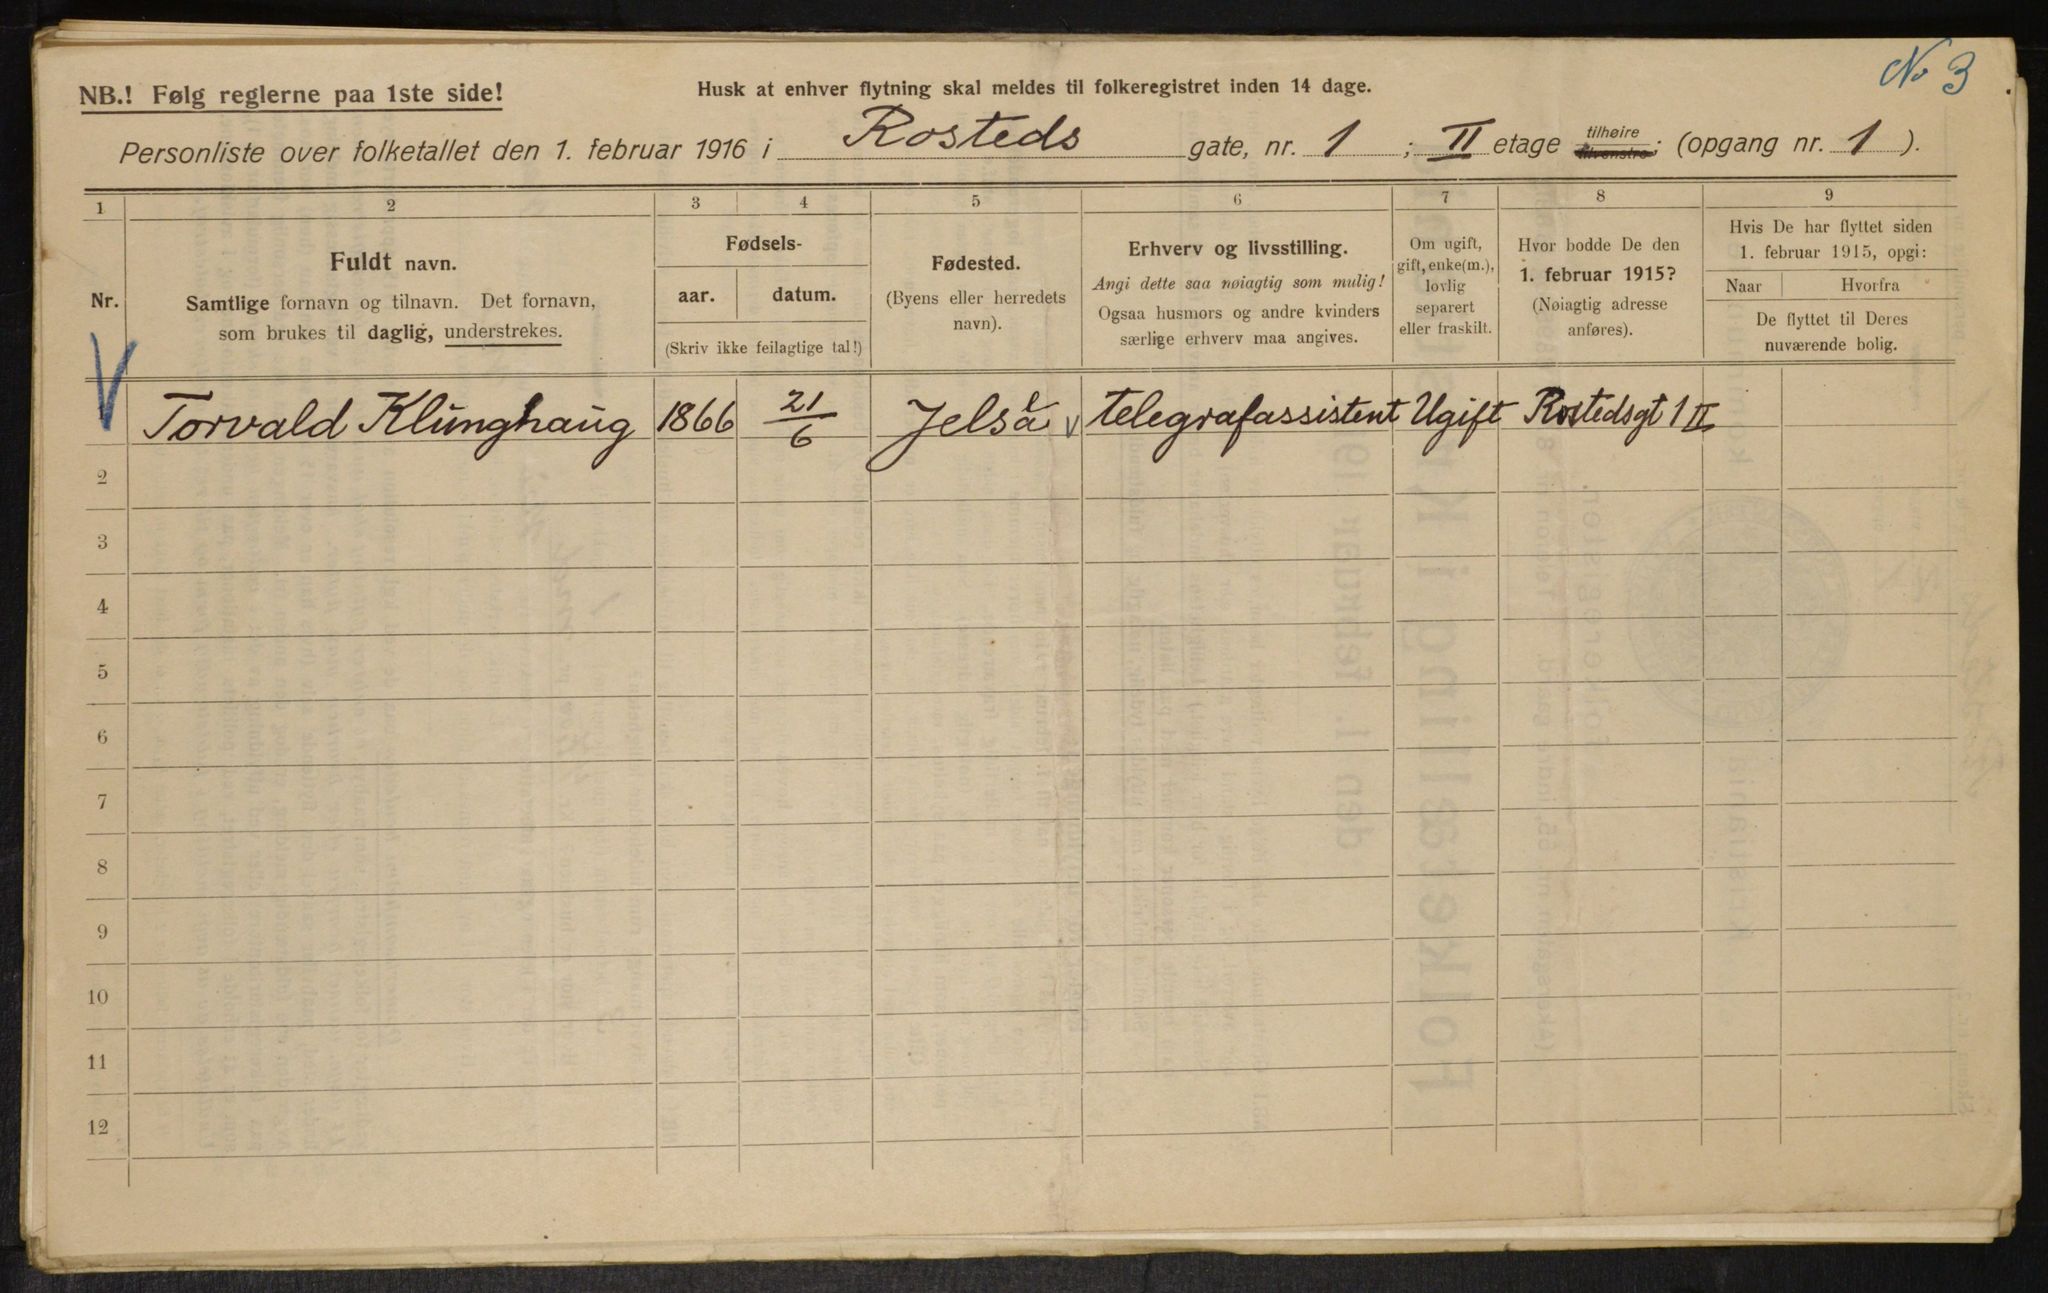 No 3
NB.! Følg reglerne paa 1ste side!
Husk at enhver flytning skal meldes til folkeregistret inden 14 dage.
Personliste over folketallet den 1. februar 1916 i Rosteds gate, nr. 1 ; II etage tilhøire tilvenstre; (opgang nr. 1 ).
1 2 3 4 5 6 7 8 9
Nr.
Fuldt navn.
Samtlige fornavn og tilnavn. Det fornavn,
som brukes til daglig, understrekes.
Fødsels-
aar. datum.
(Skriv ikke feilagtige tal!)
Fødested.
(Byens eller herredets
navn).
Erhverv og livsstilling.
Angi dette saa nøiagtig som mulig!
Ogsaa husmors og andre kvinders
særlige erhverv maa angives.
Om ugift,
gift, enke(m.),
lovlig
separert
eller fraskilt.
Hvor bodde De den
1. februar 1915?
(Nøiagtig adresse
anføres).
Hvis De har flyttet siden
1. februar 1915, opgi:
Naar Hvorfra
De flyttet til Deres
nuværende bolig.
1 Torvald Klunghaug 1866 21/6 Jelså telegrafassistent Ugift Rostedsgt 1 II
2
3
4
5
6
7
8
9
10
11
12